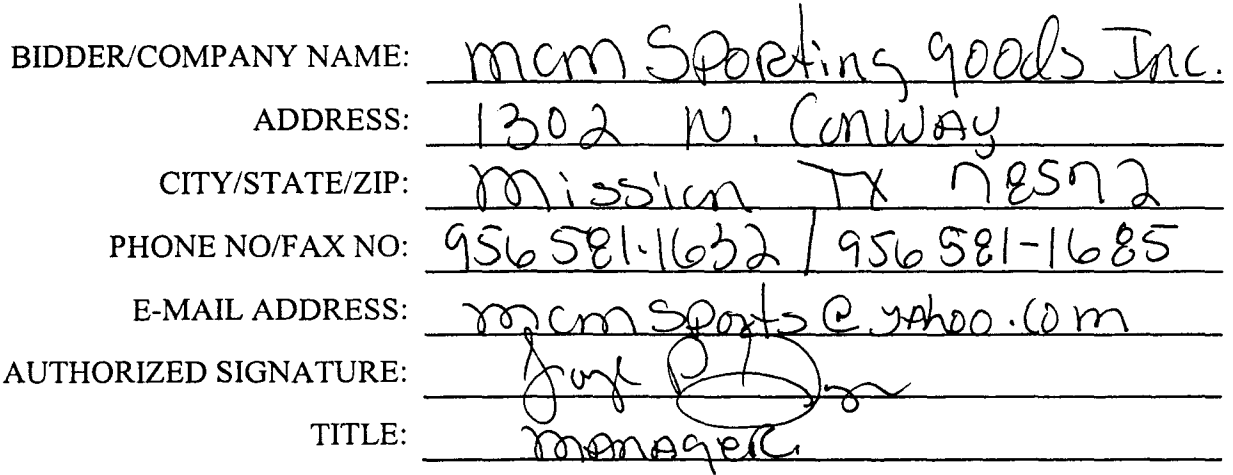 BIDDER/COMPANY NAME: mcm Sporting goods Inc.
ADDRESS: 1302 N. Conway
CITY/STATE/ZIP: Mission TX 78572
PHONE NO/FAX NO: 956 581-1632 / 956 581-1685
E-MAIL ADDRESS: mcmsports@yahoo.com
AUTHORIZED SIGNATURE:
TITLE: manager